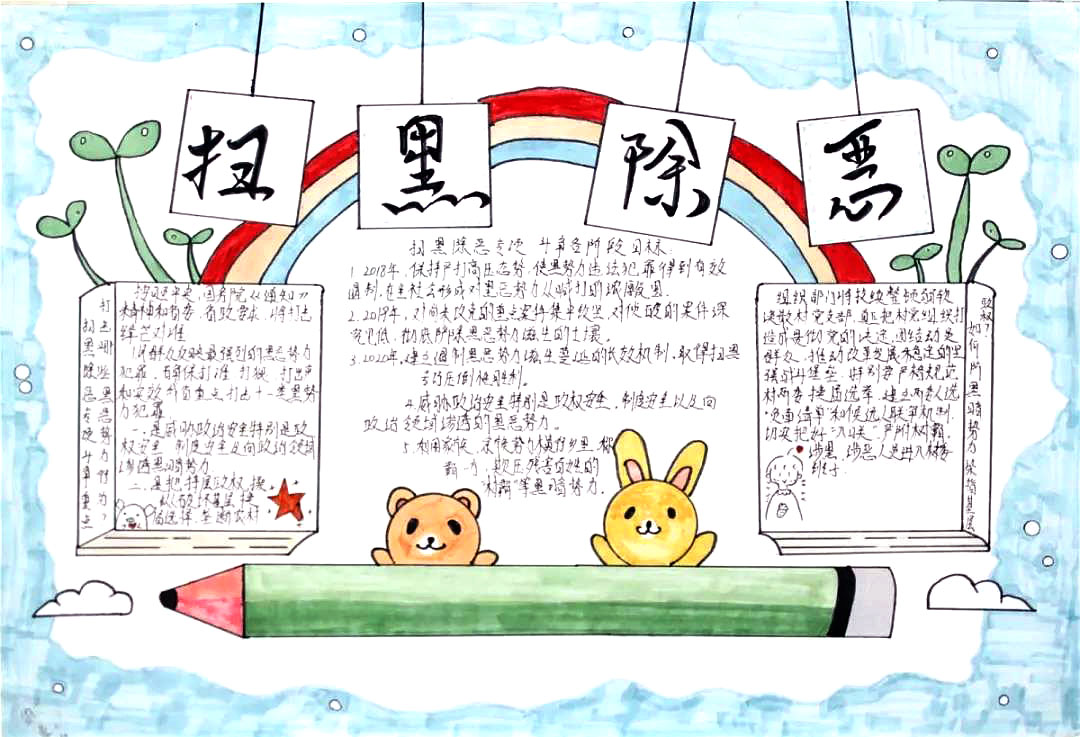 扫黑除恶
扫黑除恶专项斗争各阶段目标
1.2018年,保持严打高压态势,使黑势力违法犯罪得到有效
遏制,在全社会形成对黑恶势力人人喊打的浓厚氛围.
2.2019年,对尚未攻克的重点案件集中攻坚,对已侦破的案件深
挖见底,彻底铲除黑恶势力滋生的土壤.
3.2020年,建立遏制黑恶势力滋生蔓延的长效机制,取得扫黑
专项压倒性胜利.
4.威胁政治安全特别是政权安全,制度安全以及向
政治领域渗透的黑恶势力.
5.利用家族,宗族势力横行乡里,称
霸一方,欺压残害百姓的
"村霸"等黑恶势力.
打击黑恶势力专项斗争重点
国务院《通知》
精神和省委、省政要求,将打击
锋芒对准
1.群众反映最强烈的黑恶势力
犯罪,确保打准、打狠、打出声
力犯罪
一.是威胁政治安全特别是政
权安全、制度安全及向政治领域
渗透黑恶势力.
二.是把持基层政权、操
纵破坏基层换
届选举、垄断农村
组织部门将持续整顿软弱
涣散村党支部,真正把村党组织打
造成贯彻党的决定,团结动员
群众,推动改革发展稳定的坚
强战斗堡垒,特别要严格规范
村两委换届选举,建立两委人选
负面清单和候选人联审机制,
切实把好"入口关",严防村霸、
涉黑、涉恶人员进入村委
班子.
如何防黑恶势力染指基层
政权?